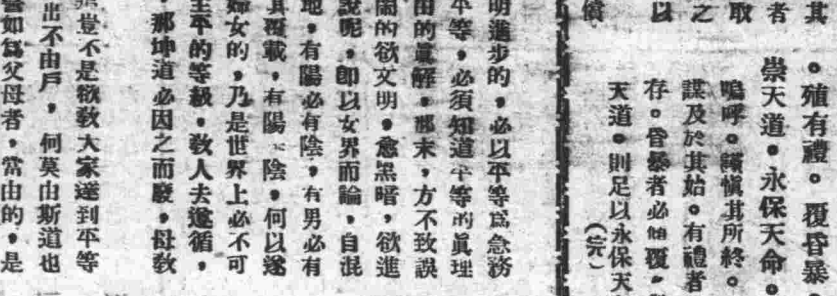 其
者
取
之
以
償
。殖有禮。覆昏暴。
崇天道。永保天命。
嗚呼。謹愼其所終。
謀及於其始。有禮者
存。昏暴者必傾覆。
天道。則足以永保天
(完)
明進步的，必以平等爲急務
平等，必須知道平等的眞理
由的眞解，那末，方不致誤
的欲文明，愈黑暗，欲進
說呢，卽以女界而論，自混
地，有陽必有陰，有男必有
其覆載，有陽 陰，何以遂
婦女的，乃是世界上必不可
主平的等級，敎人去遵循，
，那坤道必因之而廢，母敎
豈不是欲敎大家達到平等
出不由戶，何莫由斯道也
譬如爲父母者，當由的，是